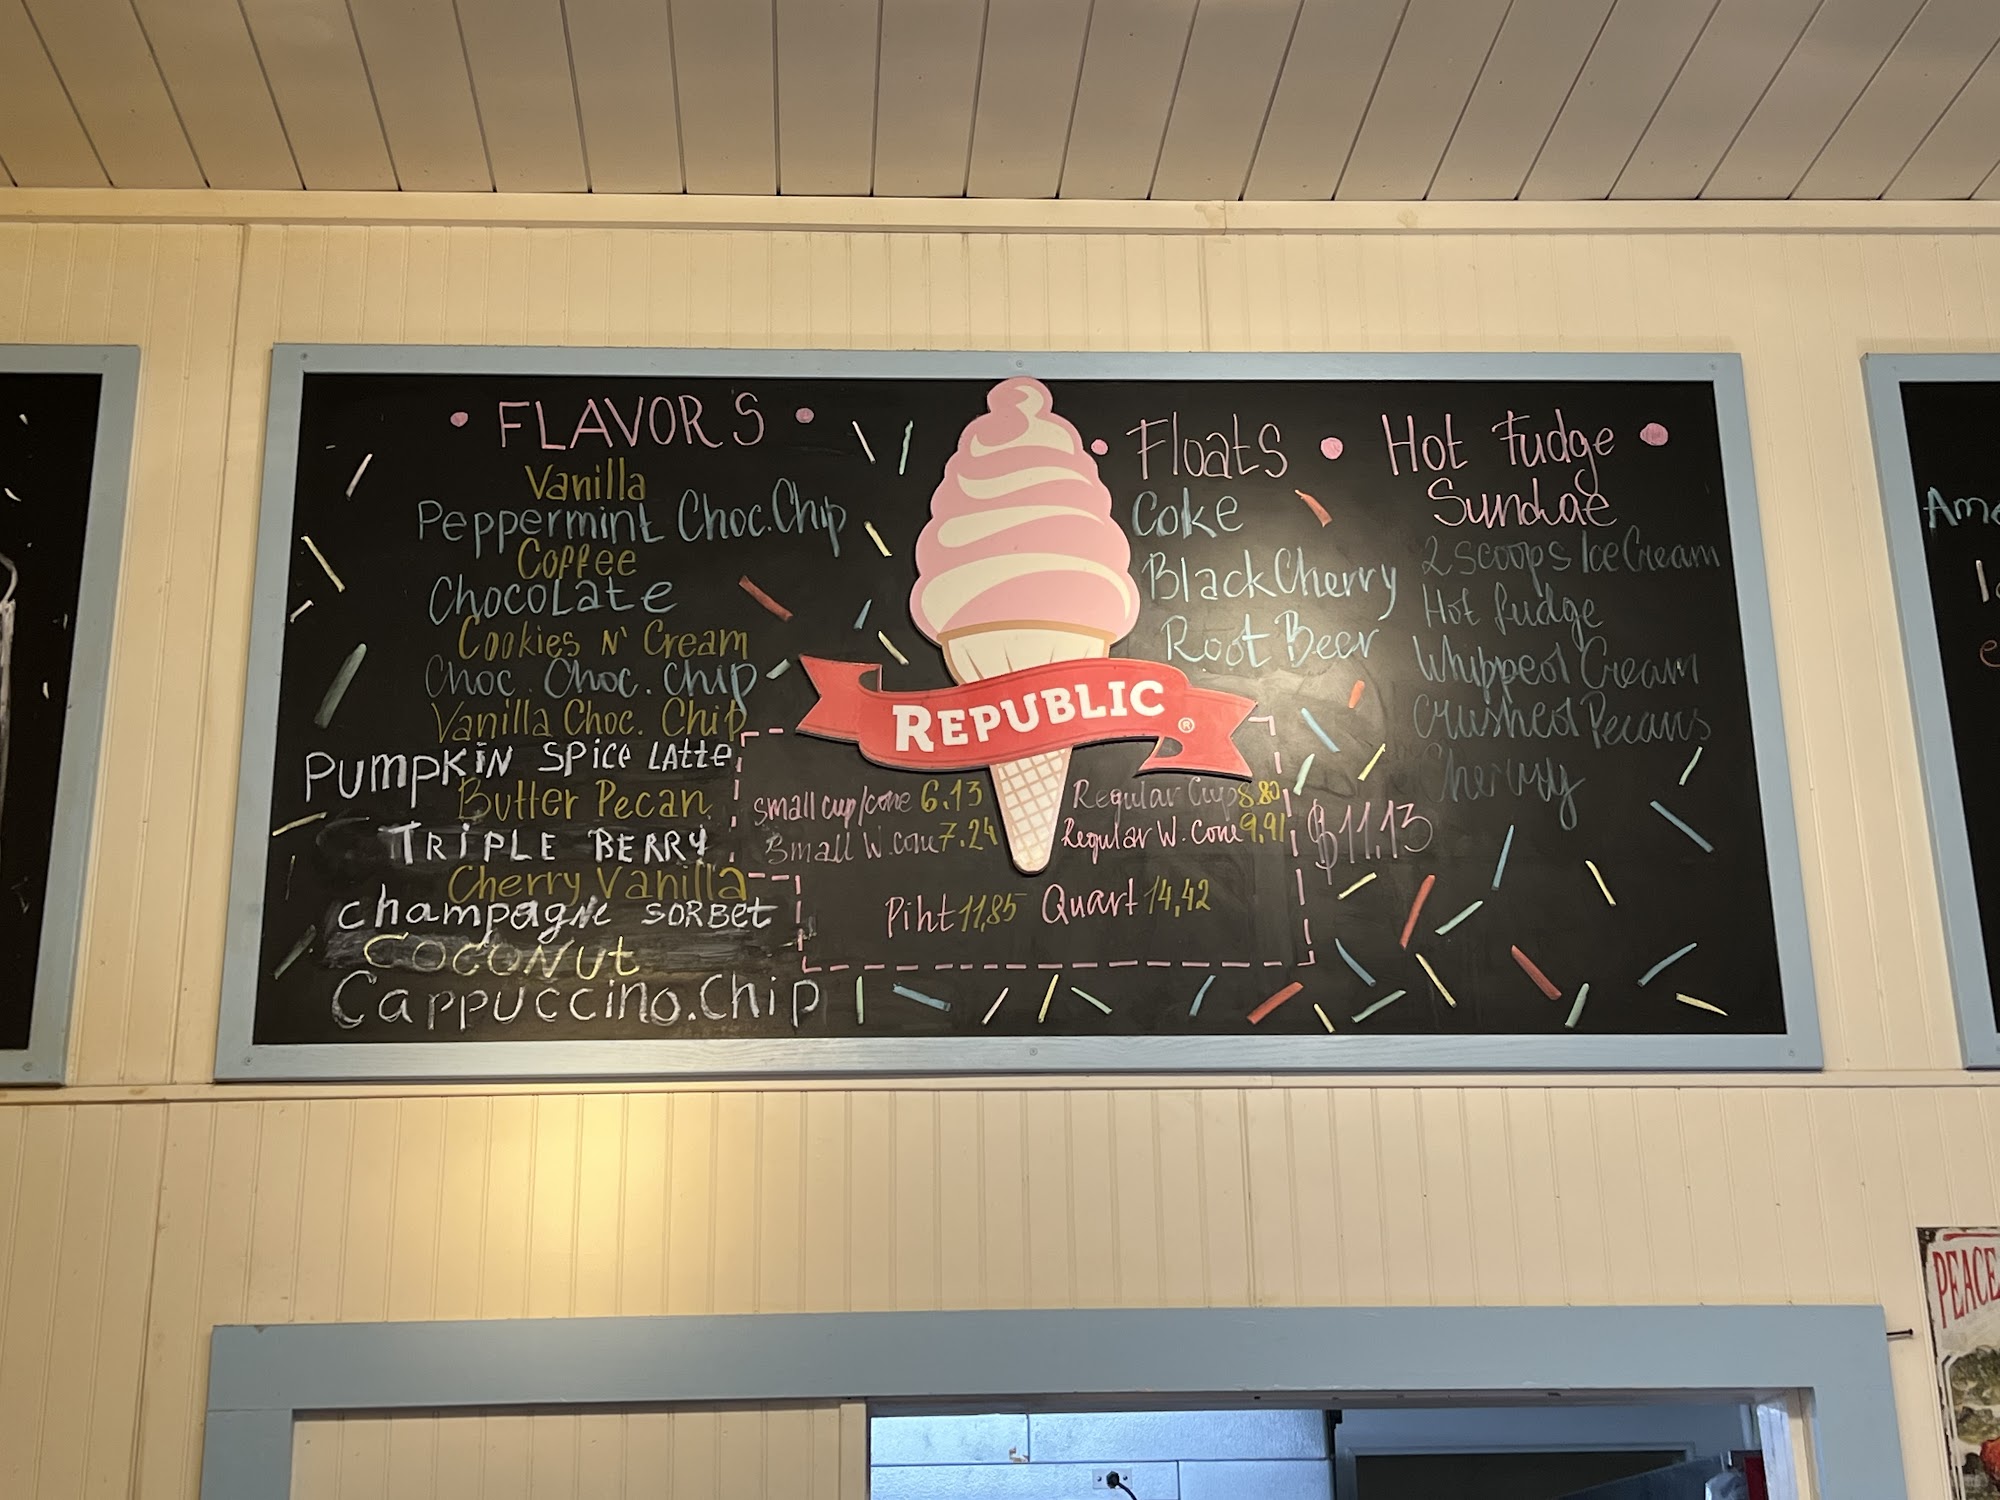 FLAVOR'S
Vanilla
Peppermint Choc.Chip
Coffee
Chocolate
Cookies N' Cream
Choc. Choc. Chip
Vanilla Choc. Chip
PUMPKIN SPICE LATTE
Butter Pecan
TRIPLE BERRY
Cherry Vanilla
champagne SORBET
COCONUT
Cappuccino.Chip
REPUBLIC ®
small cup/cone 6.13
Small W. cone 7.24
Regular Cup 8.80
Regular W. Cone 9,91
Piht 11,85 Quart 14,42
Floats
Coke
Black Cherry
Root Beer
Hot Fudge
Sundae
2 scoops Ice Cream
Hot fudge
Whipped Cream
Crushed Pecans
Cherry
$11,13
Ame
PEACE